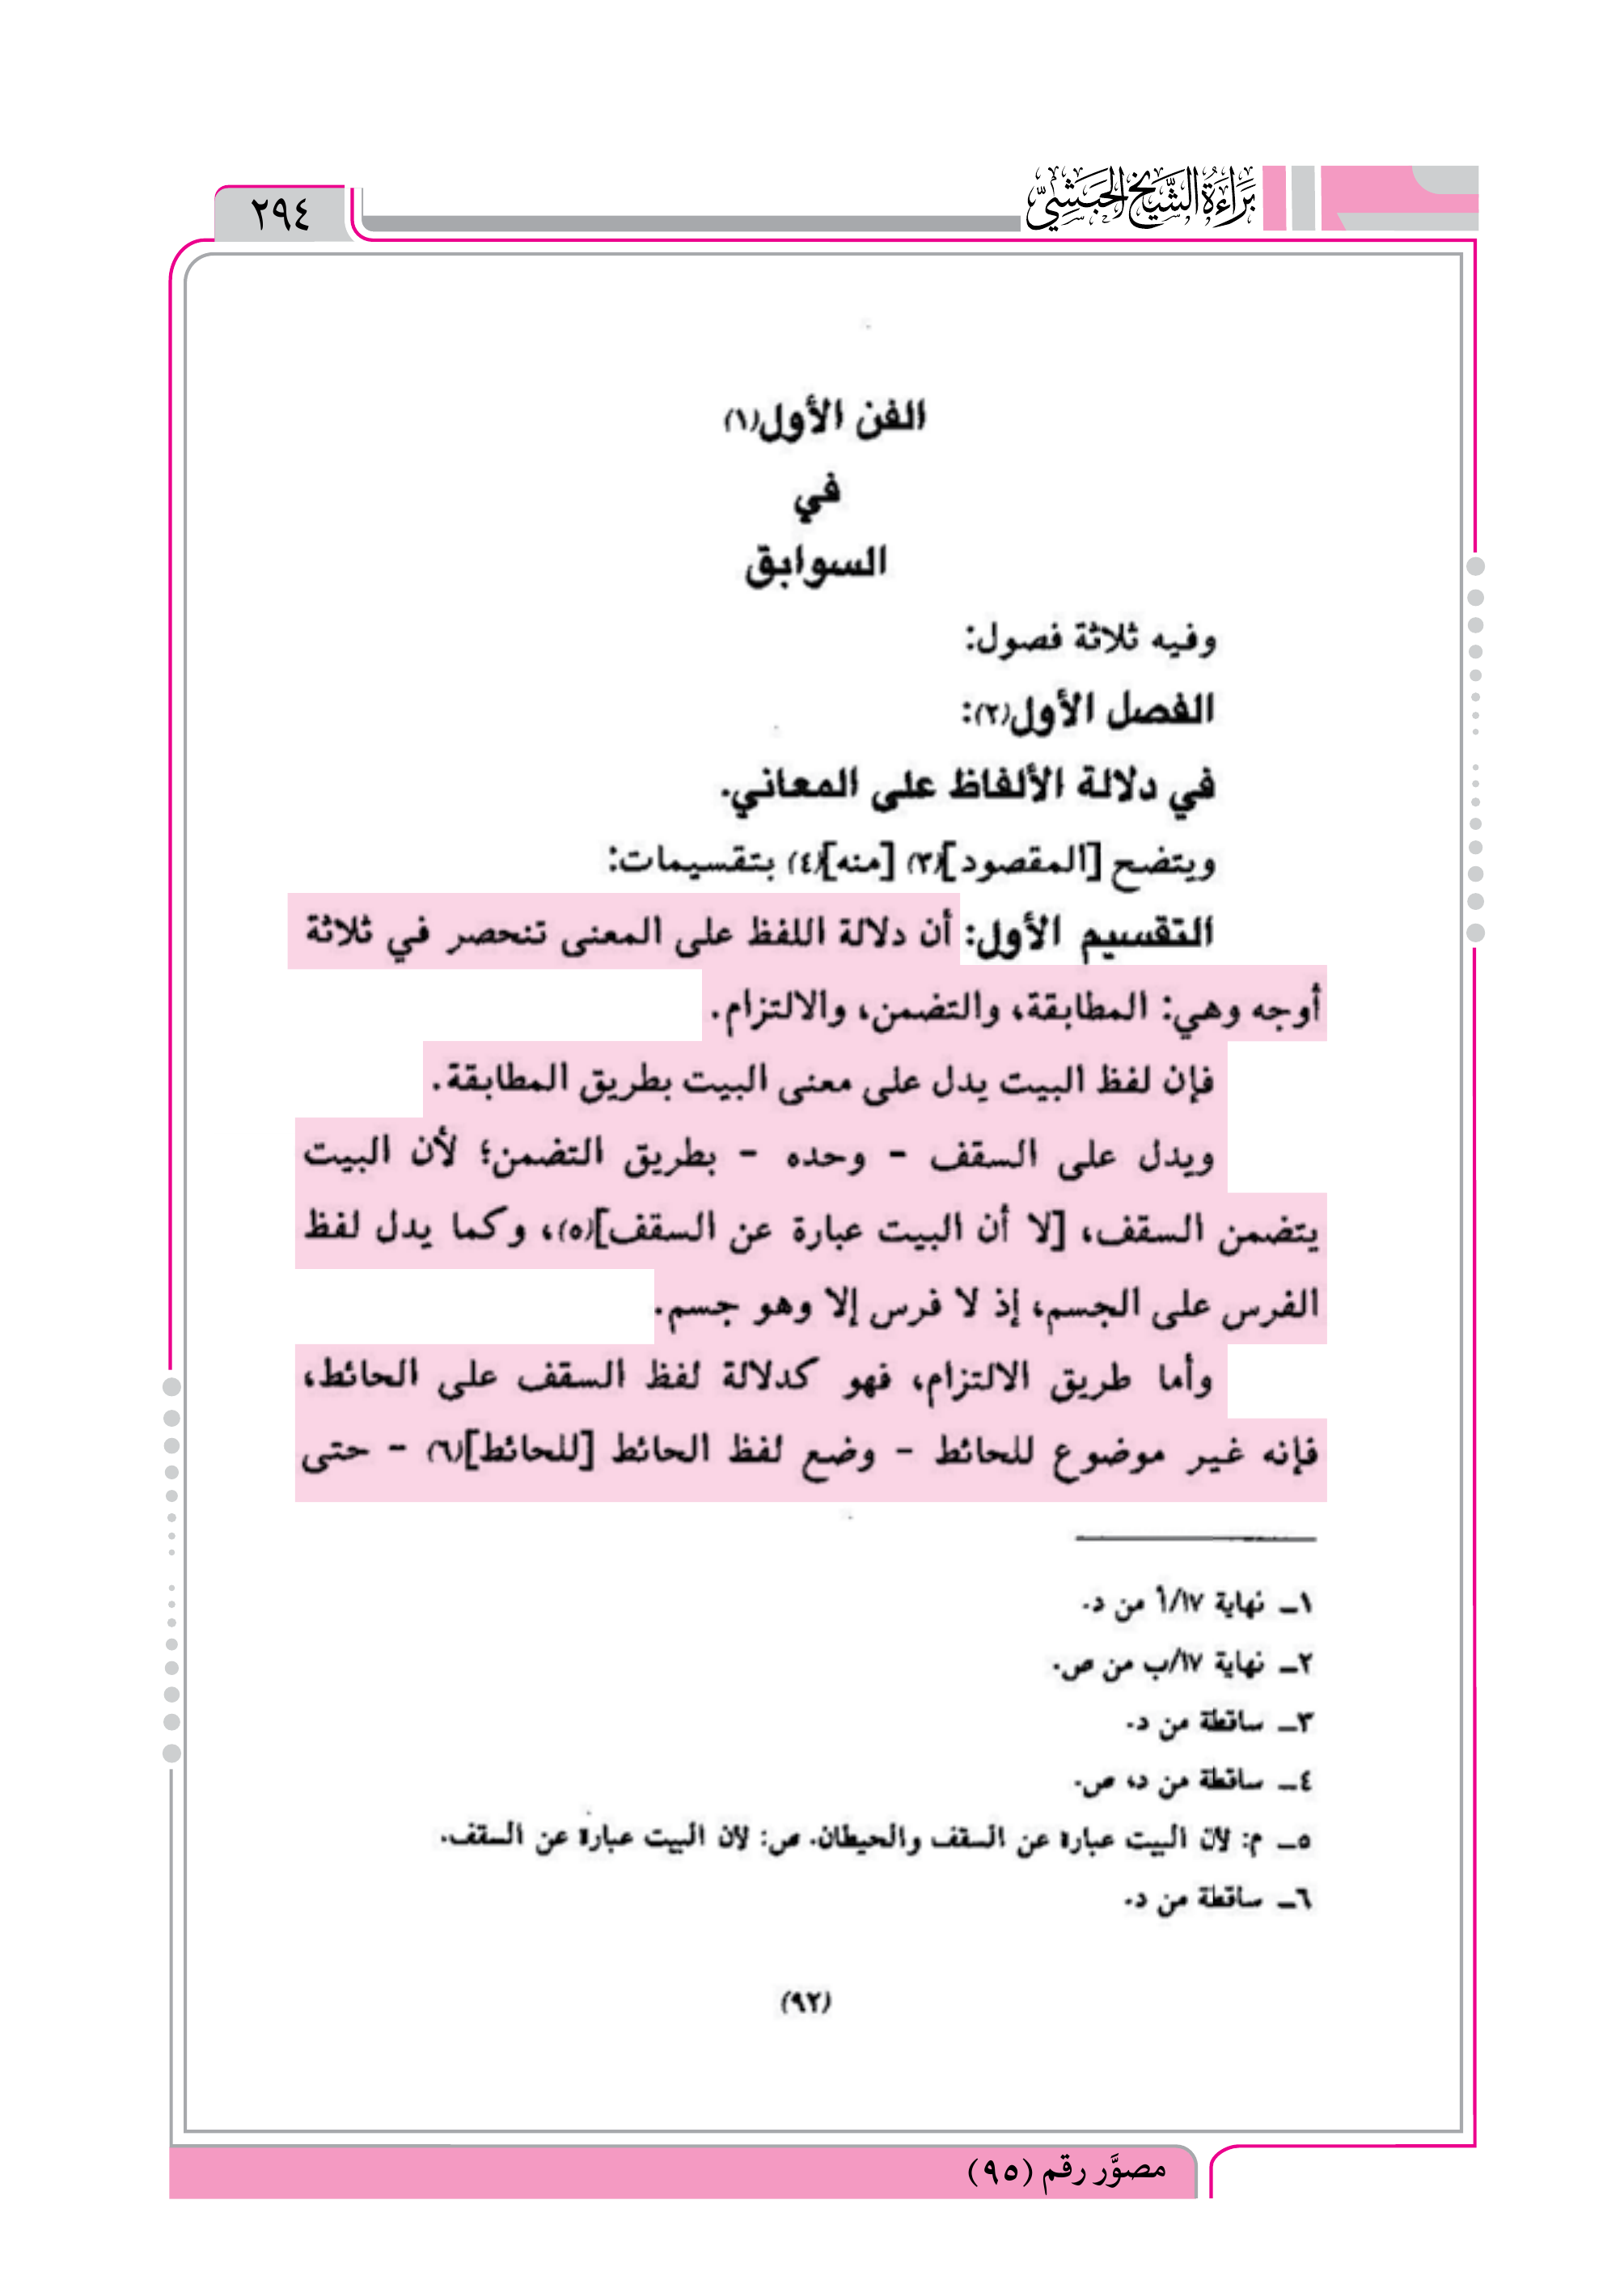 براءة الشيخ الحبشي
٢٩٤
الفن الأول(١)
في
السوابق
وفيه ثلاثة فصول:
الفصل الأول(٢):
في دلالة الألفاظ على المعاني.
ويتضح [المقصود](٣) [منه](٤) بتقسيمات:
التقسيم الأول: أن دلالة اللفظ على المعنى تنحصر في ثلاثة
أوجه وهي: المطابقة، والتضمن، والالتزام.
فإن لفظ البيت يدل على معنى البيت بطريق المطابقة.
ويدل على السقف - وحده - بطريق التضمن؛ لأن البيت
يتضمن السقف، [لا أن البيت عبارة عن السقف](٥)، وكما يدل لفظ
الفرس على الجسم، إذ لا فرس إلا وهو جسم.
وأما طريق الالتزام، فهو كدلالة لفظ السقف على الحائط،
فإنه غير موضوع للحائط - وضع لفظ الحائط [للحائط](٦) - حتى
١ـ نهاية ١٧/أ من د.
٢ـ نهاية ١٧/ب من ص.
٣ـ ساقطة من د.
٤ـ ساقطة من د، ص.
٥ـ م: لأن البيت عبارة عن السقف والحيطان. ص: لأن البيت عبارة عن السقف.
٦ـ ساقطة من د.
(٩٢)
مصوَّر رقم (٩٥)